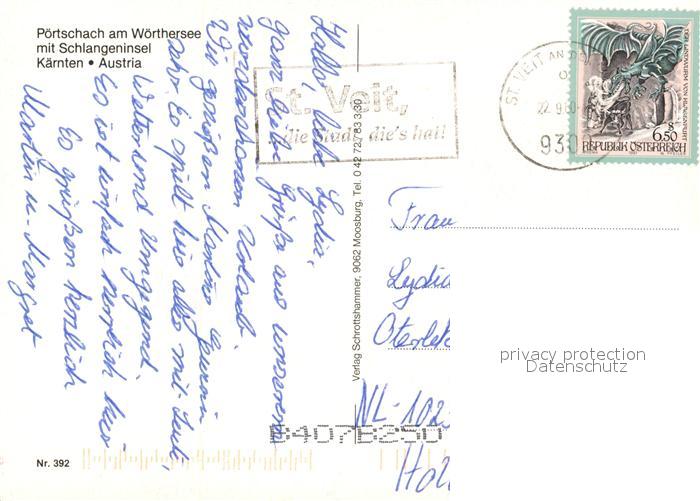 Pörtschach am Wörthersee
mit Schlangeninsel
Kärnten • Austria
Hallo, liebe Lydia,
ganz liebe Grüße aus unserem
wunderschönen Urlaub.
Wir genießen Martins
sehr. Es spielt hier alles mit. Leute,
Wetter und Umgegend.
Es ist einfach herrlich hier
Es grüßen herzlich
Martin u. Margret
St. Veit,
die Stadt, die's hat!
ST. VEIT AN DER
22.9.
930
6.50
REPUBLIK ÖSTERREICH
Verlag Schrottshammer, 9062 Moosburg, Tel. 0 42 72 / 83 3 30
Frau
Lydia
Oterlek
NL-102
Hol
privacy protection
Datenschutz
Nr. 392